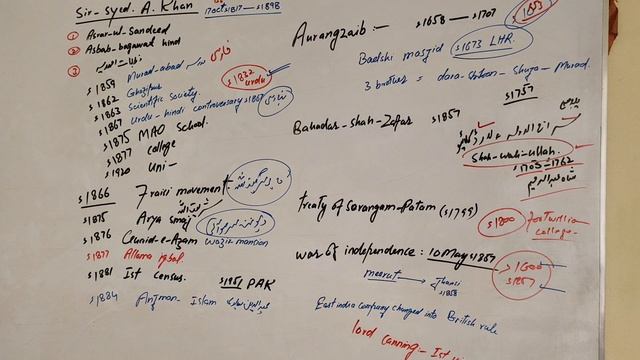 Sir-Syed. A. Khan 17 Oct 1817 - 1898
① Asrar-ul Sanadeed
② Asbab-bagawad hind
③
1859 Murad-abad مدرسہ فارسی
1862 Ghazipur
1832 urdu
1863 Scientific Society.
1867 Urdu-hindi controversary 1867
1875 MAO School.
1877 college
1920 Uni-
1866 Fraizi movement
1875 Arya smaj
1876 Quaid-e-Azam wazir mansion
1877 Allama Iqbal.
1881 Ist Census. 1951 PAK
1884 Anjman Islam
Aurangzaib :- 1658 — 1707
1653
Badshi masjid 1673 LHR.
3 brothers = dara-Shikoh-Shuja-Murad.
1757
Bahadar-shah-Zaffar 1857
Shah-wali-ullah.
1703-1762
شاہ عبدالرحیم
treaty of Sarangam-Patam (1799)
1800 fortwillia college-
war of independence : 10 May 1857
1600
1857
meerut → Jhansi
1858
East india company changed into British rule
lord canning- Ist